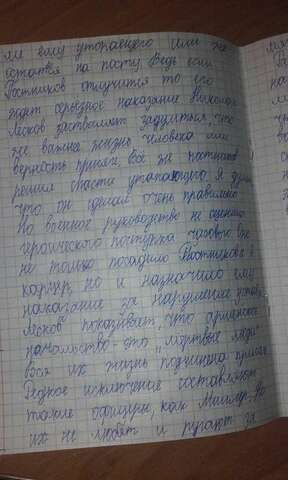 ли ему утопающего или же
остаться на посту Ведь если
Постников отлучится то его
ждёт серьёзное наказание Николай
Лесков заставляет задуматься что
же важнее жизнь человека или
верность приказу. Всё же постников
решил спасти утапающего. Я думаю
что он сделал очень правильно
Но военное руководство не оценило
героического поступка часового Оно
не только посадило Постникова в
карцер, но и назначило ему
наказание за нарушение устава
Лесков показывает, что армейское
начальство - это "мёртвые люди"
вся их жизнь подчинена приказу
Редкое исключение составляют
такие офицеры, как Миллер. Но
их не любят и ругают за